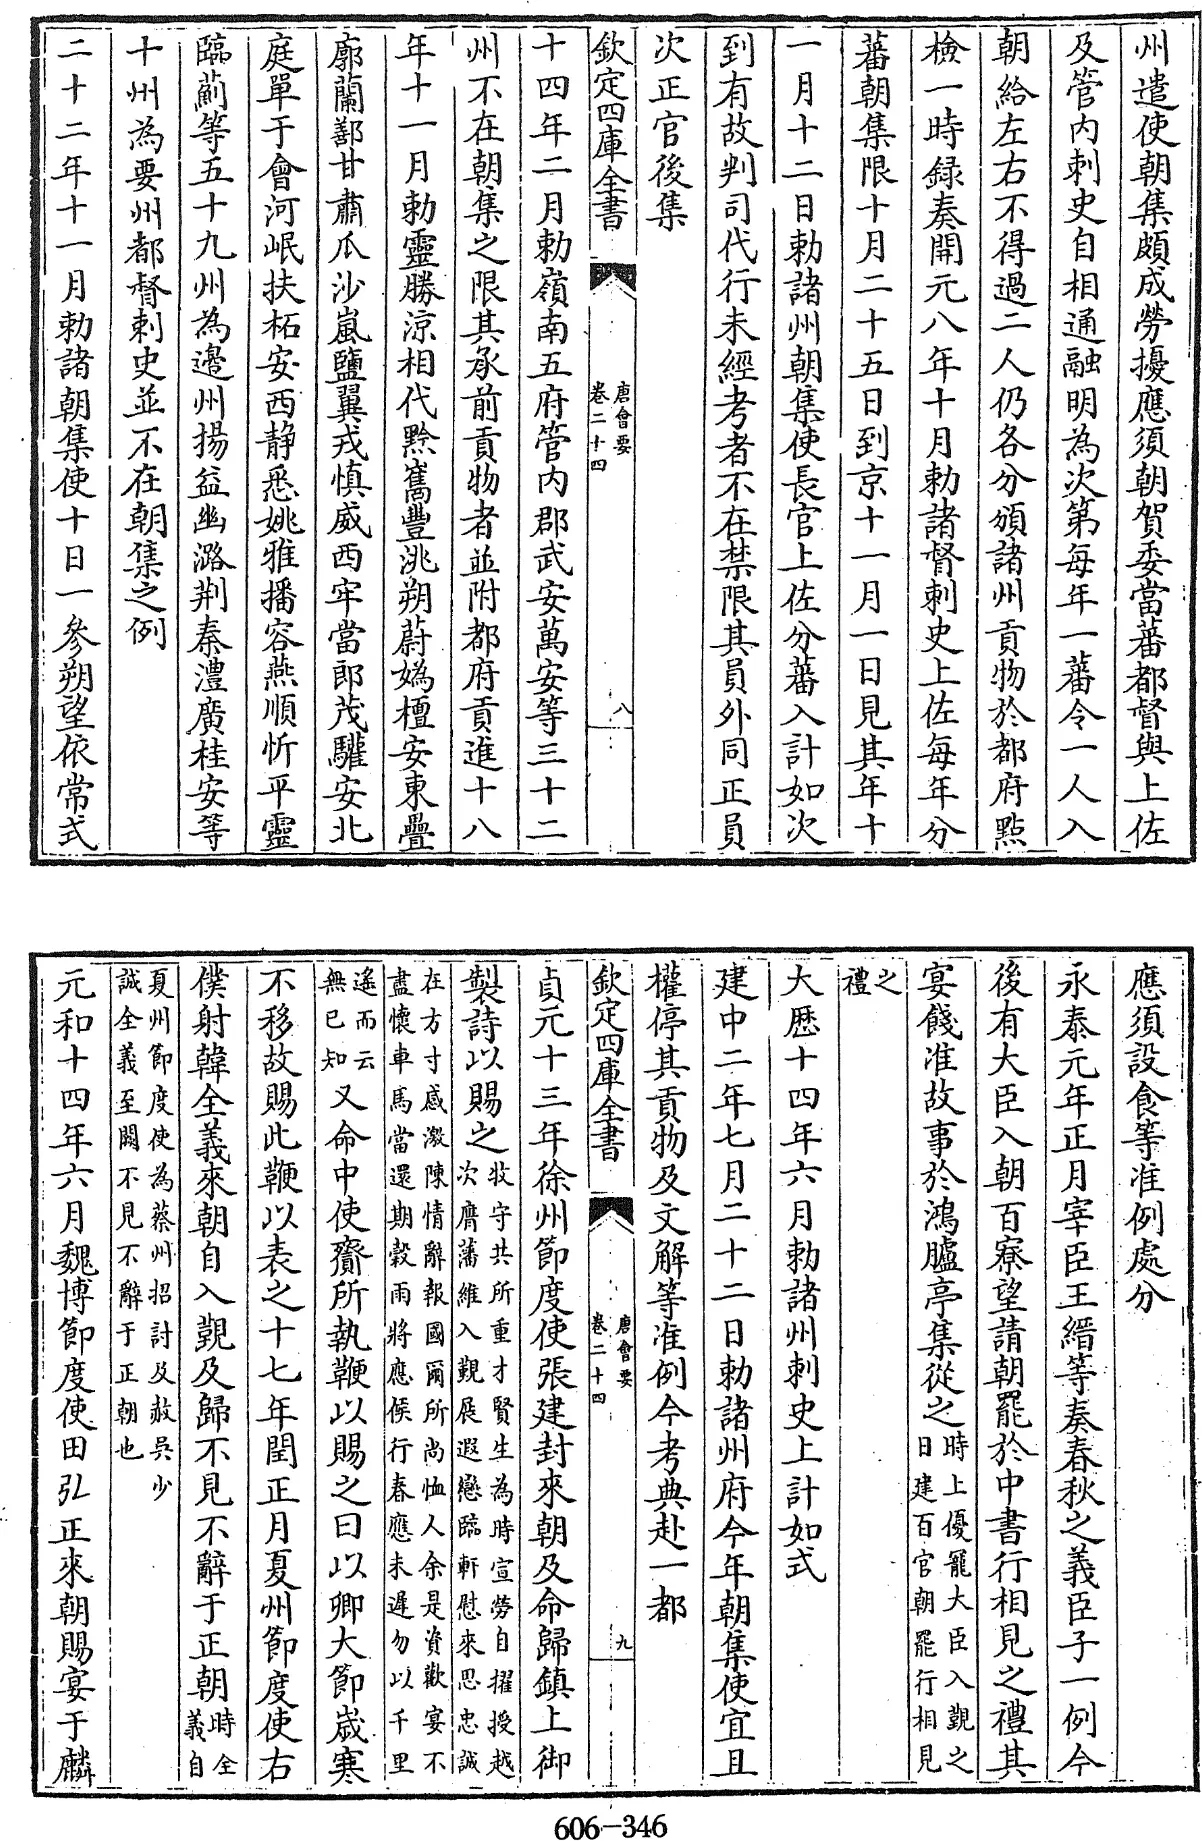 州遣使朝集頗成勞擾應須朝賀委當蕃都督與上佐
及管内刺史自相通融明為次第每年一蕃令一人入
朝給左右不得過二人仍各分頒諸州貢物於都府點
檢一時録奏開元八年十月勅諸督刺史上佐每年分
蕃朝集限十月二十五日到京十一月一日見其年十
一月十二日勅諸州朝集使長官上佐分蕃入計如次
到有故判司代行未經考者不在禁限其員外同正員
次正官後集
欽定四庫全書
唐會要
卷二十四
八
十四年二月勅嶺南五府管内郡武安萬安等三十二
州不在朝集之限其承前貢物者並附都府貢進十八
年十一月勅靈勝涼相代黔嶲豐洮朔蔚媯檀安東疊
廓蘭鄯甘肅瓜沙嵐鹽翼戎慎威西牢當郎茂驩安北
庭單于會河岷扶柘安西静悉姚雅播容燕順忻平靈
臨薊等五十九州為邊州揚益幽潞荆秦澧廣桂安等
十州為要州都督刺史並不在朝集之例
二十二年十一月勅諸朝集使十日一參朔望依常式
應須設食等准例處分
永泰元年正月宰臣王縉等奏春秋之義臣子一例今
後有大臣入朝百寮望請朝罷於中書行相見之禮其
宴餞准故事於鴻臚亭集從之時上優寵大臣入覲之
日建百官朝罷行相見
之
禮
大歴十四年六月勅諸州刺史上計如式
建中二年七月二十二日勅諸州府今年朝集使宜且
權停其貢物及文解等准例令考典赴一都
欽定四庫全書
唐會要
卷二十四
九
貞元十三年徐州節度使張建封來朝及命歸鎮上御
製詩以賜之牧守共所重才賢生為時宣勞自擢授越
次膺藩維入覲展遐戀臨軒慰來思忠誠
在方寸感激陳情辭報國爾所尚恤人余是資歡宴不
盡懷車馬當還期穀雨將應候行春應未遲勿以千里
遥而云
無已知又命中使齎所執鞭以賜之曰以卿大節歲寒
不移故賜此鞭以表之十七年閏正月夏州節度使右
僕射韓全義來朝自入覲及歸不見不辭于正朝時全
義自
夏州節度使為蔡州招討及赦吳少
誠全義至闕不見不辭于正朝也
元和十四年六月魏博節度使田弘正來朝賜宴于麟
606-346